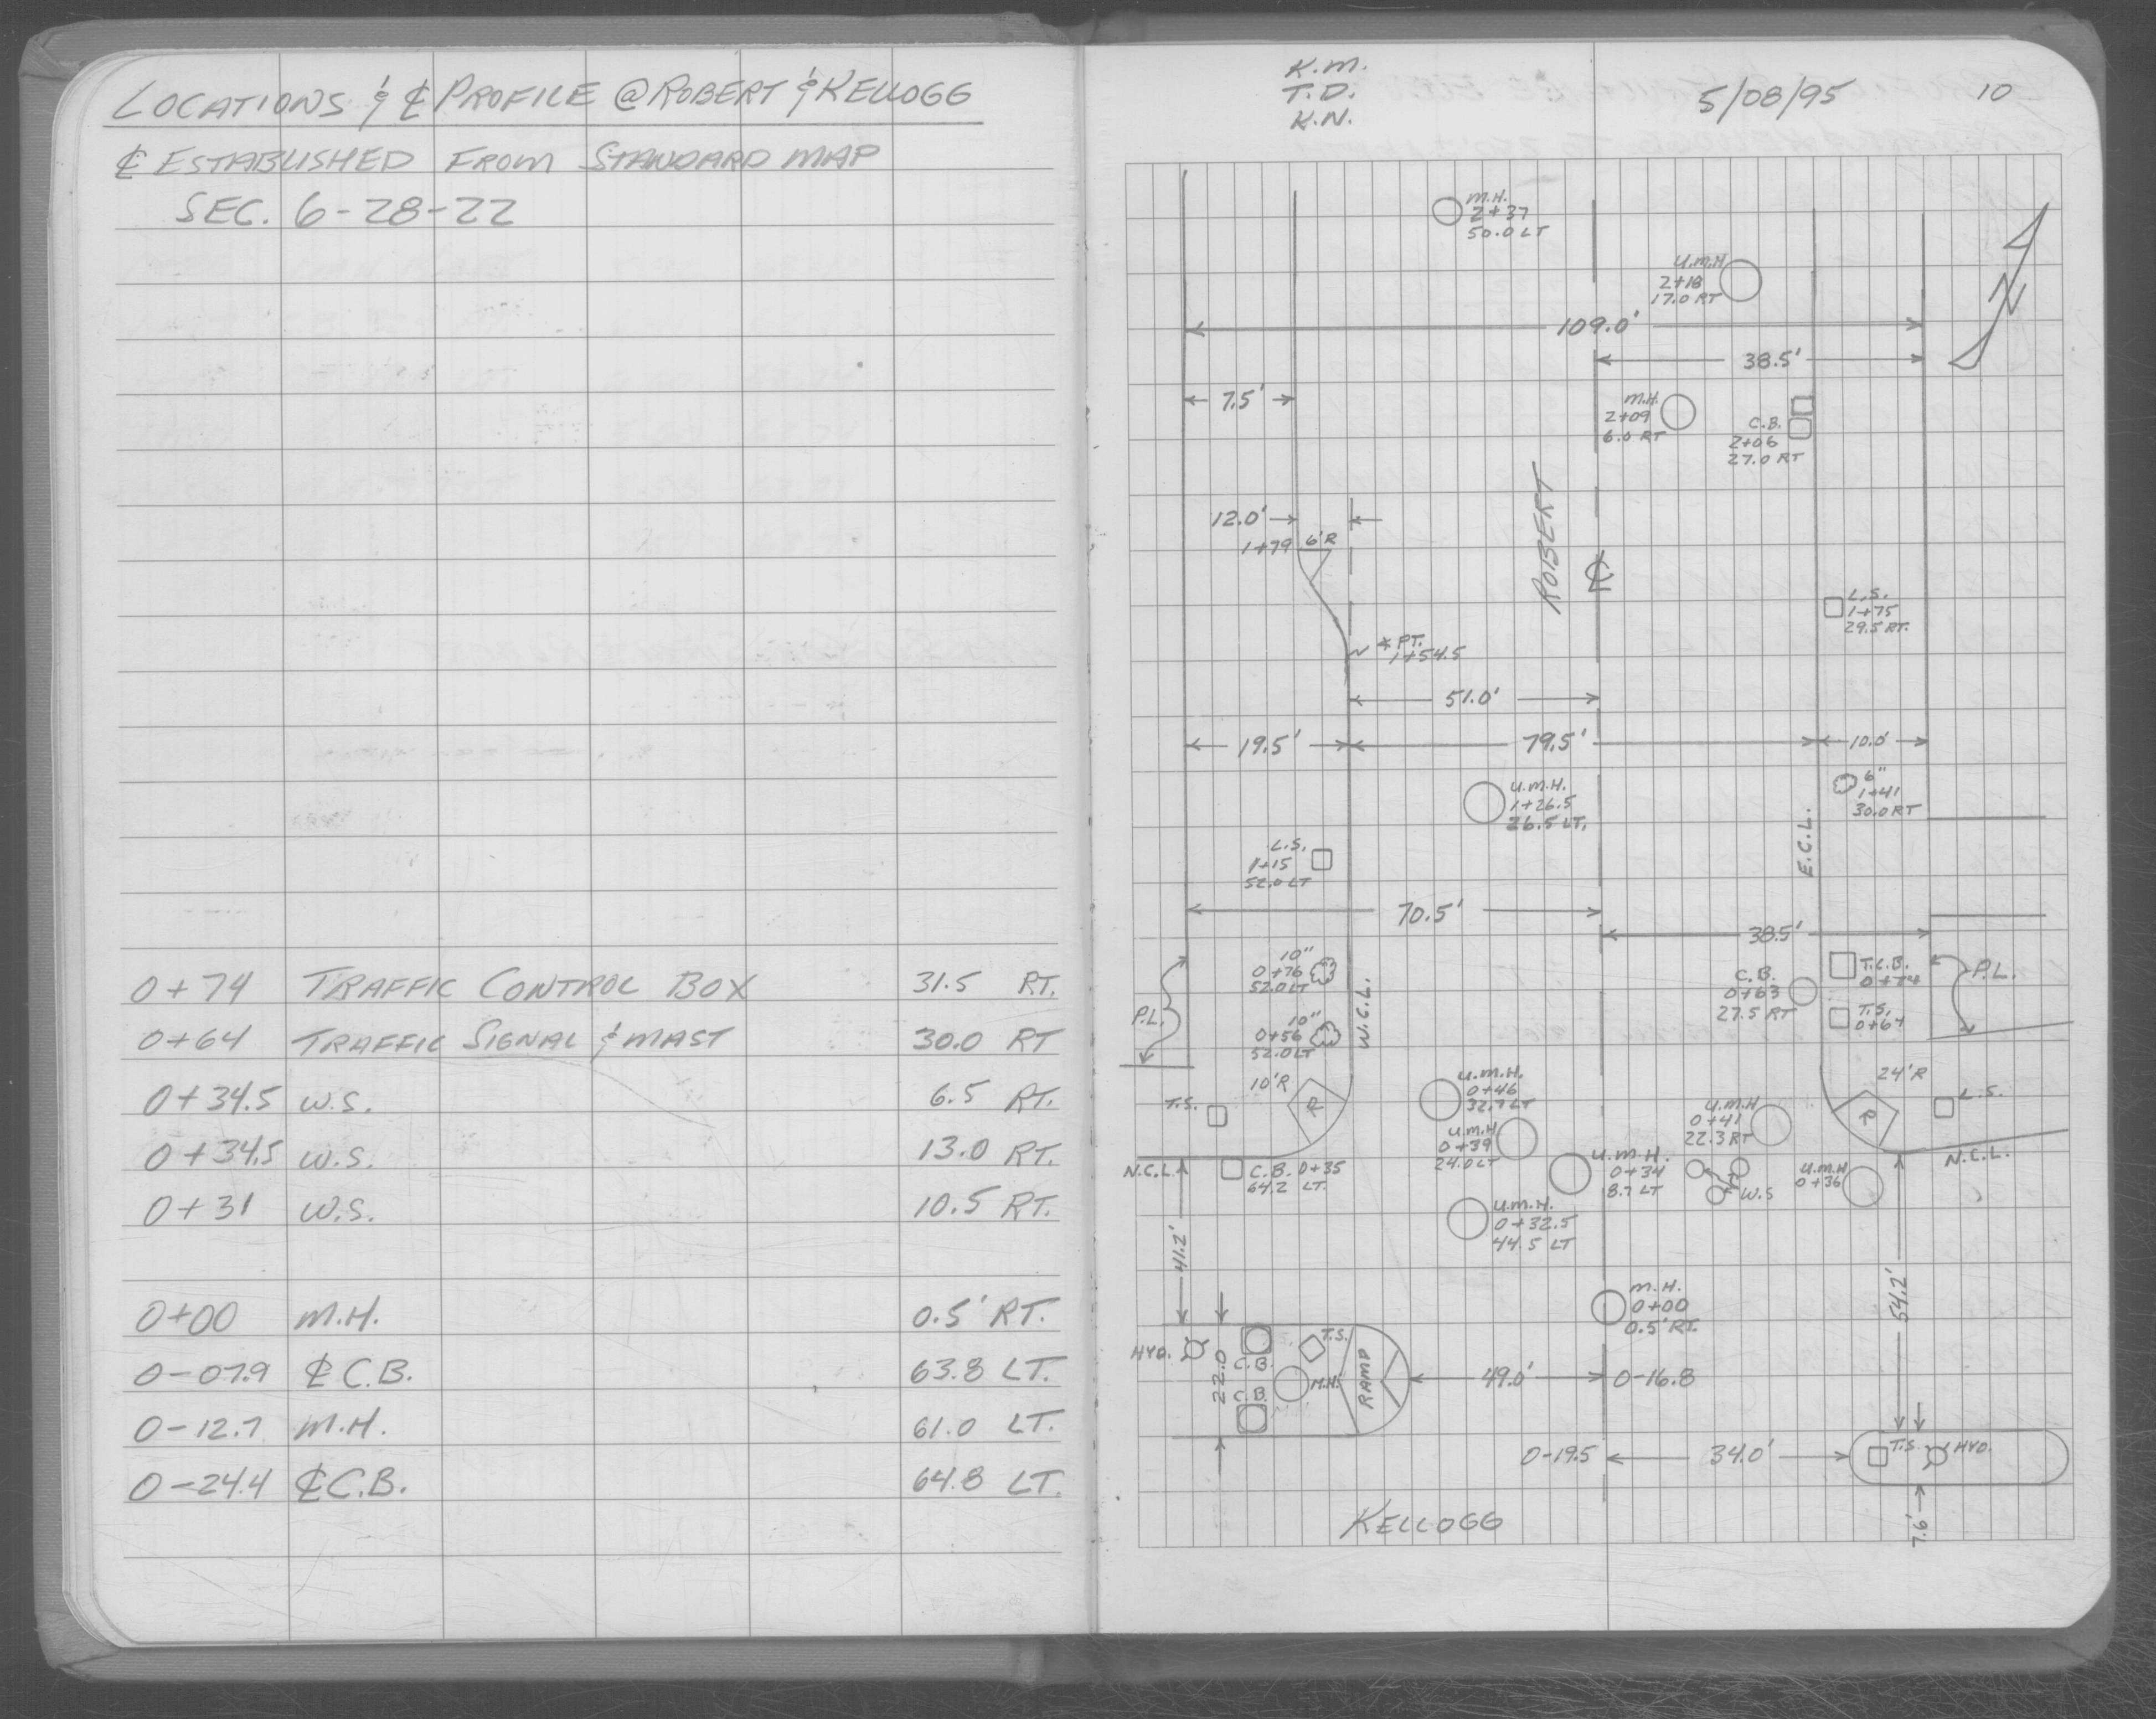 LOCATIONS & ℄ PROFILE @ ROBERT & KELLOGG
℄ ESTABLISHED FROM STANDARD MAP
SEC. 6-28-22
0+74 TRAFFIC CONTROL BOX 31.5 RT.
0+64 TRAFFIC SIGNAL & MAST 30.0 RT
0+34.5 W.S. 6.5 RT.
0+34.5 W.S. 13.0 RT.
0+31 W.S. 10.5 RT.
0+00 M.H. 0.5' RT.
0-07.9 ℄ C.B. 63.8 LT.
0-12.7 M.H. 61.0 LT.
0-24.4 ℄ C.B. 64.8 LT.
K.M.
T.D.
K.N.
5/08/95 10
M.H.
2+37
50.0 LT
U.M.H
2+18
17.0 RT
N
109.0'
38.5'
7.5'
M.H.
2+09
6.0 RT
C.B.
2+06
27.0 RT
ROBERT
℄
12.0'
1+79 6'R
L.S.
1+75
29.5 RT.
* PT.
1+54.5
51.0'
19.5' 79.5' 10.0'
U.M.H.
1+26.5
26.5 LT.
6"
1+41
30.0 RT
E.C.L.
L.S.
1+15
52.0 LT
70.5'
38.5'
10"
0+76
52.0 LT
W.C.L.
C.B.
0+63
27.5 RT
T.C.B.
0+74
P.L.
T.S.
0+64
P.L.
10"
0+56
52.0 LT
10'R
R
T.S.
U.M.H.
0+46
32.7 LT
U.M.H
0+41
22.3 RT
24'R
R
L.S.
U.M.H
0+39
24.0 LT
N.C.L.
C.B. 0+35
64.2 LT.
U.M.H.
0+34
8.7 LT
W.S
U.M.H
0+36
N.C.L.
U.M.H.
0+32.5
44.5 LT
41.2'
54.2'
M.H.
0+00
0.5' RT.
HYD.
22.0
C.B.
T.S.
C.B.
M.H.
RAMP
49.0' 0-16.8
0-19.5 34.0'
T.S. HYD.
7.6'
KELLOGG